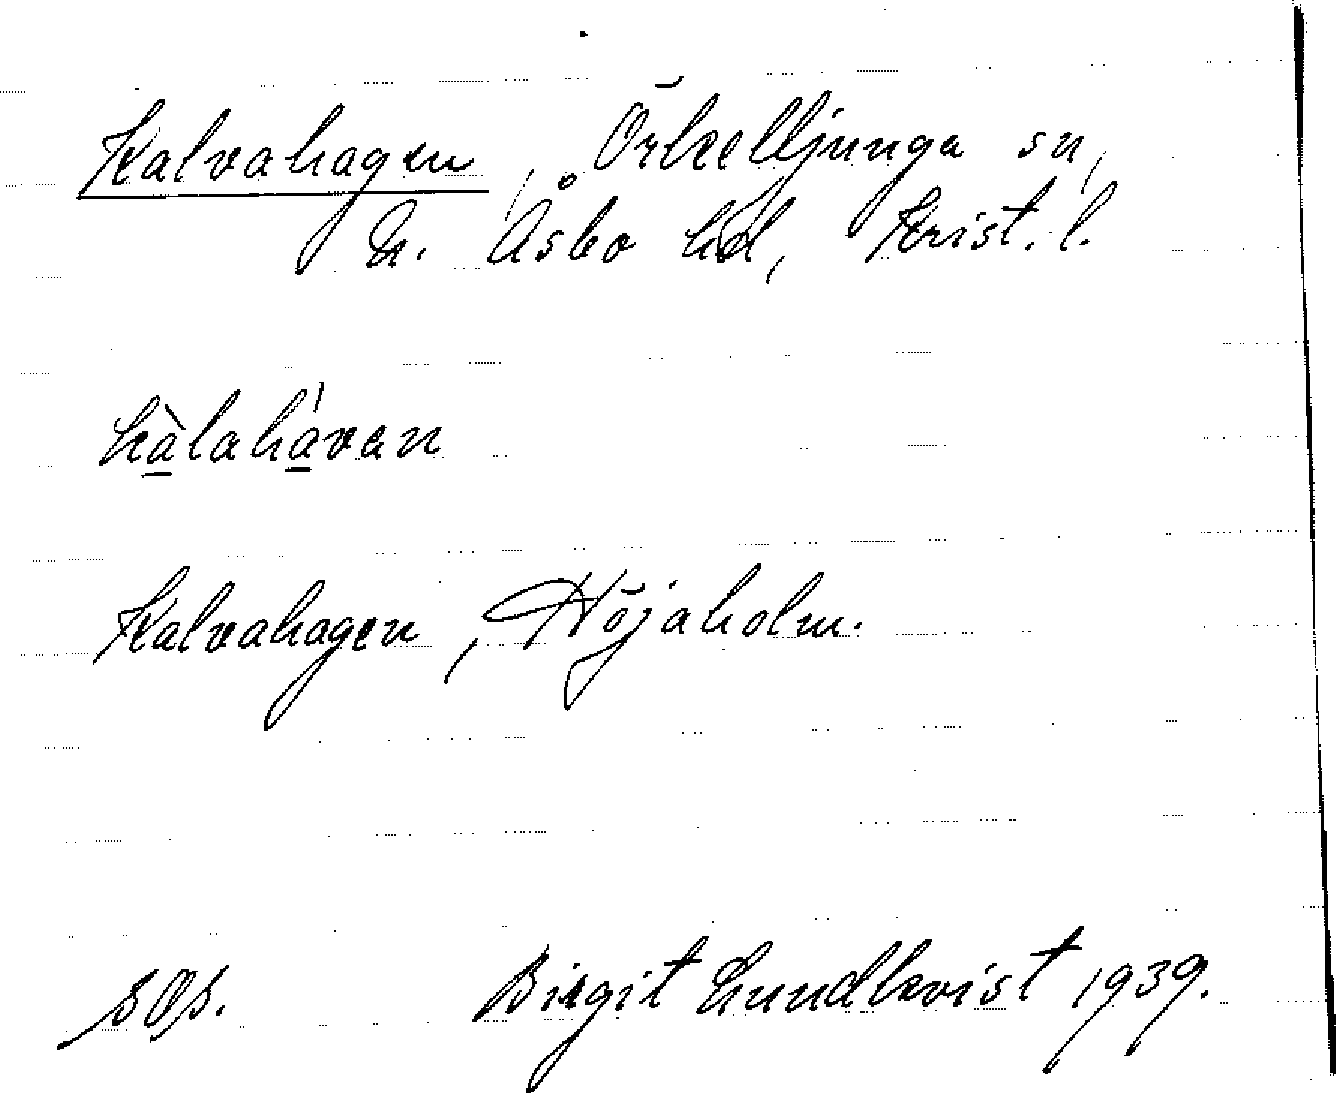 Kalvahagen, Örkelljunga sn,
N. Åsbo hd, Krist. l.
kàlahávan
Kalvahagen, Höjaholm.
Birgit Lundkvist 1939.